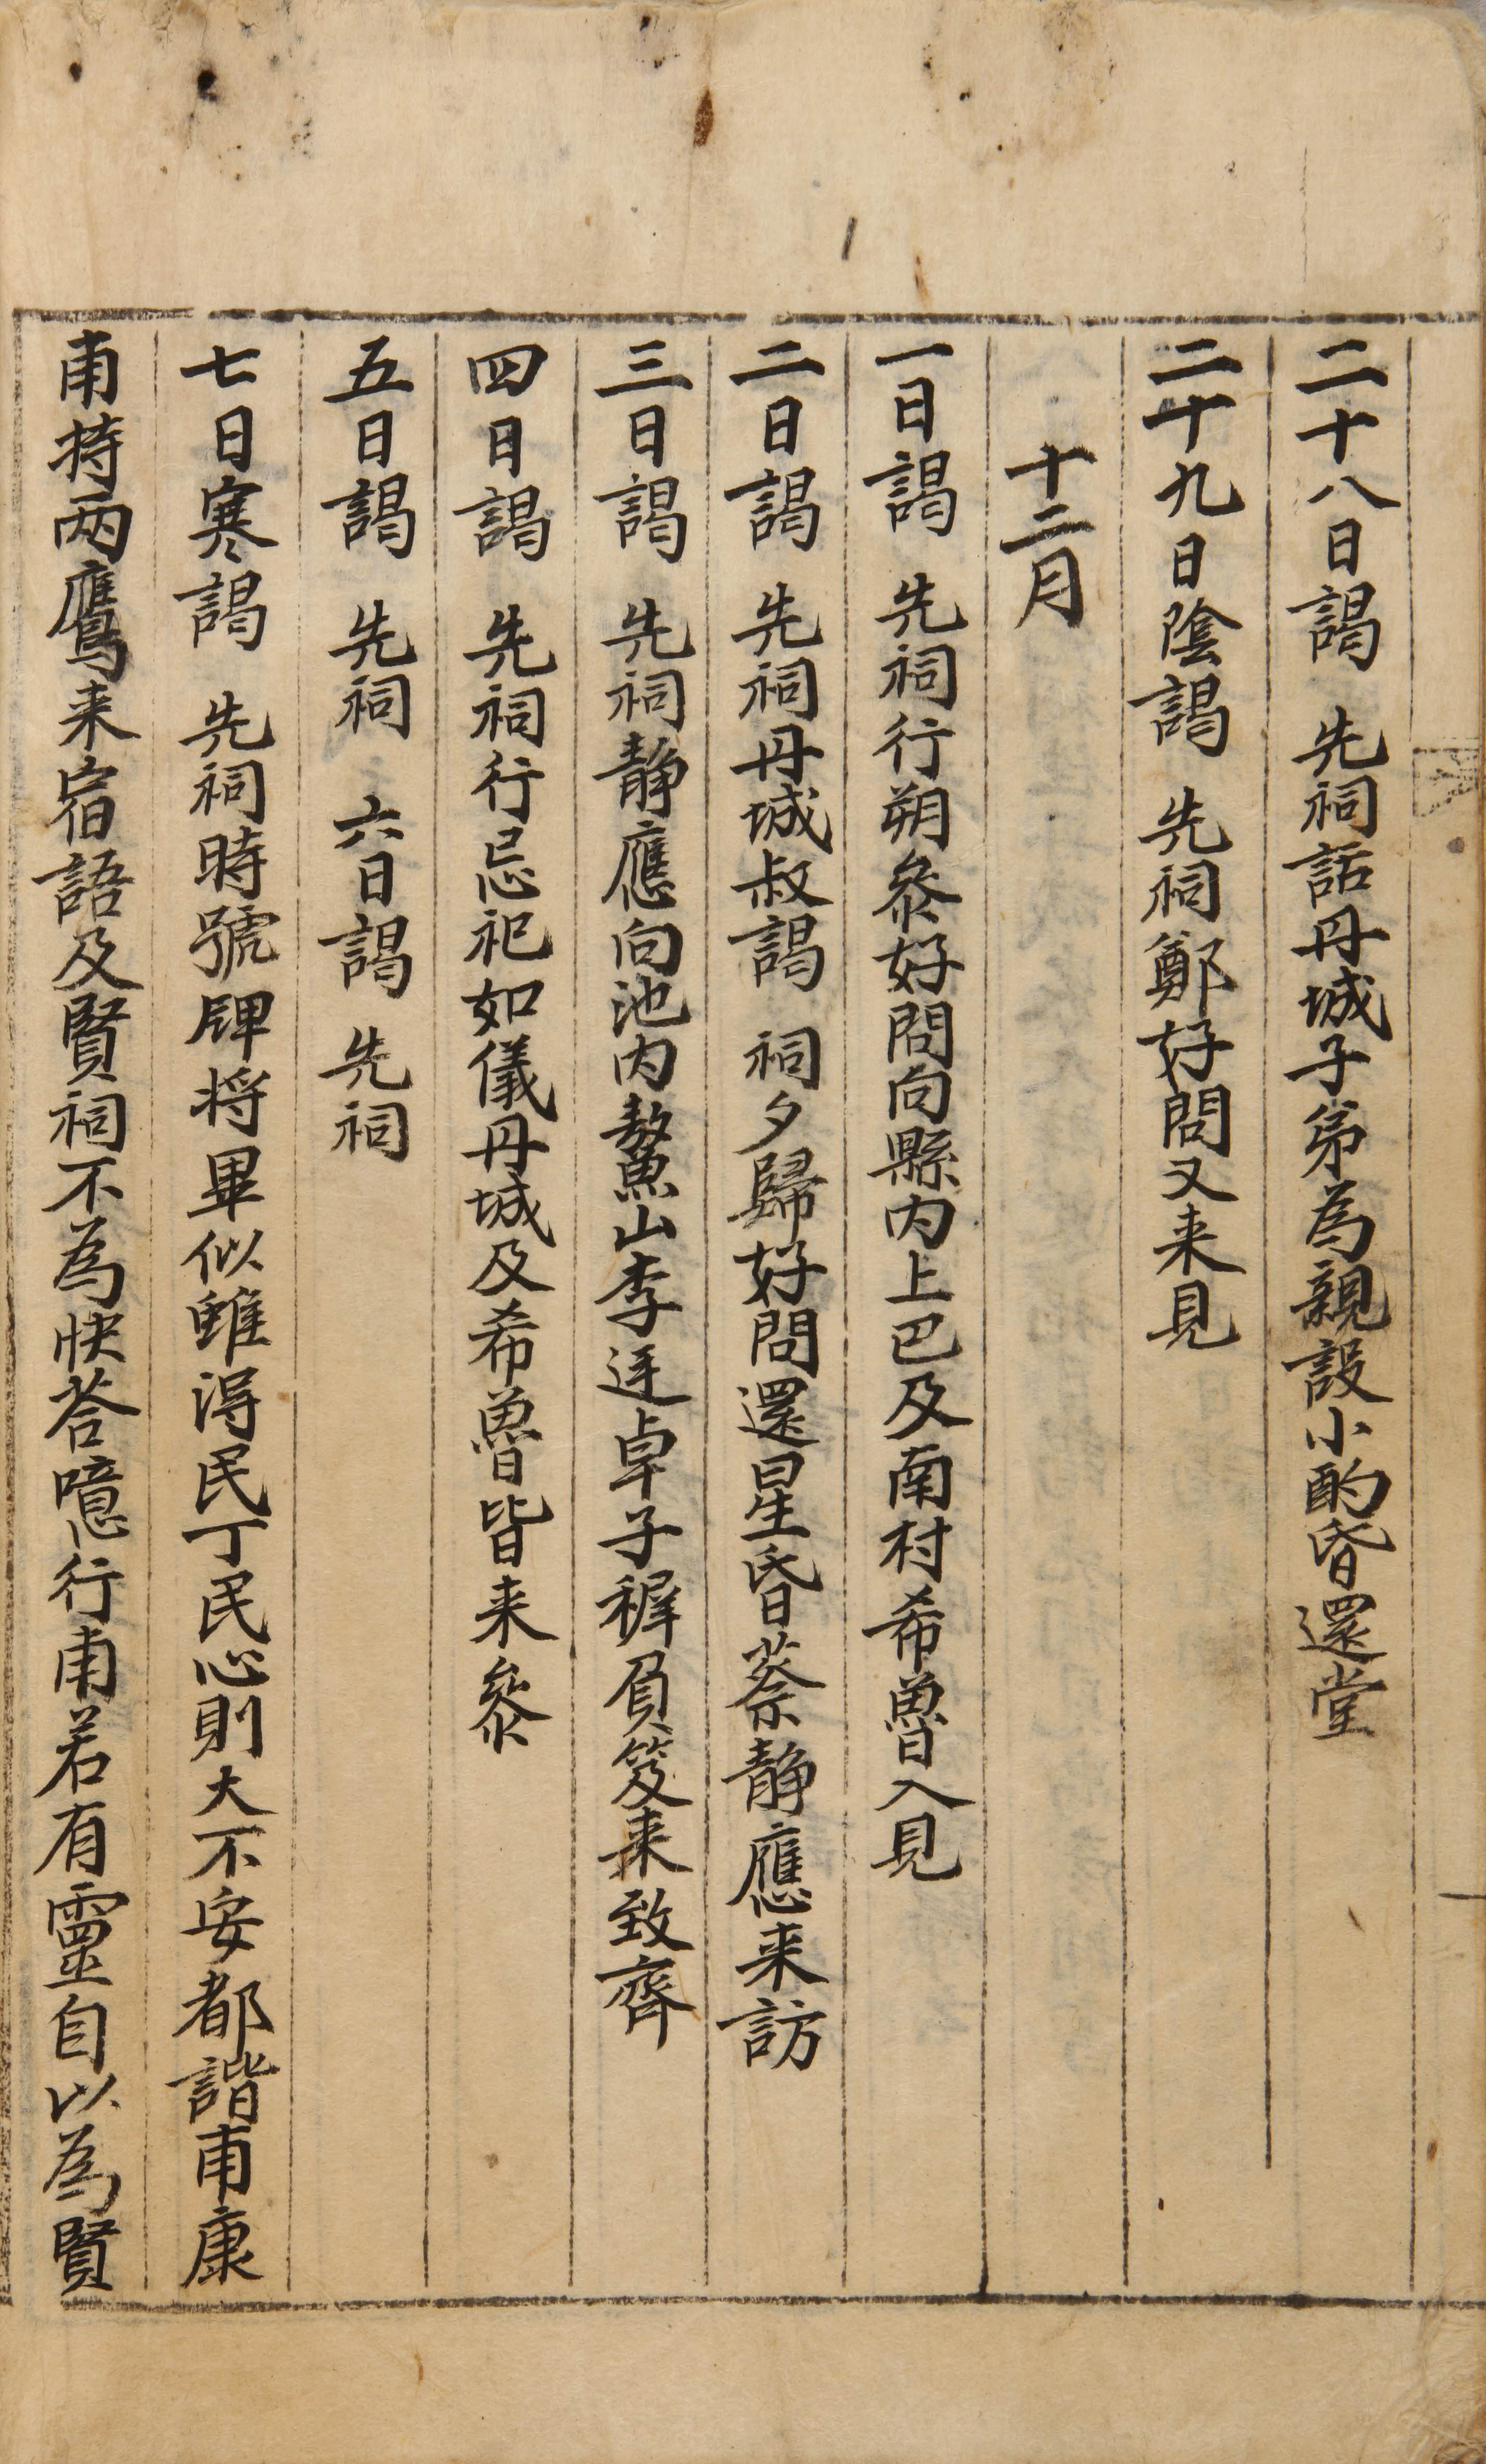 二十八日謁 先祠話丹城子弟為親設小酌昏還堂
二十九日陰謁 先祠鄭好問又来見
十二月
一日謁 先祠行朔叅好問向縣内上巴及南村希魯入見
二日謁 先祠丹城叔謁 祠夕歸好問還星昏蔡静應来訪
三日謁 先祠静應向池内鰲山李迋卓子穉負笈来致齊
四日謁 先祠行忌祀如儀丹城及希魯皆来叅
五日謁 先祠 六日謁 先祠
七日寒謁 先祠時號牌将畢似雖淂民丁民心則大不安都諧甫康
甫持两鷹来宿語及賢祠不為快荅噫行甫若有靈自以為賢